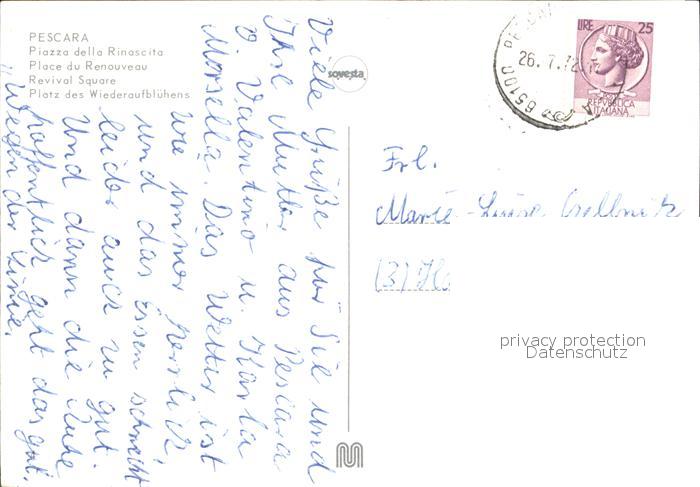 PESCARA
Piazza della Rinascita
Place du Renouveau
Revival Square
Platz des Wiederaufblühens
sovesta
Viele Grüße für Sie und
Ihre Mutter aus Pescara
V. Valentino u. Karla
Morsella. Das Wetter ist
wie immer herrlich
und das Essen schmeckt
leider auch zu gut.
Und dann die Ruhe
hoffentlich geht das gut.
"Wegen der Linie.
65100 PESCA
26.7.72
LIRE 25
REPVBBLICA
ITALIANA
Frl.
Marie-Luise
(3)
privacy protection
Datenschutz
M